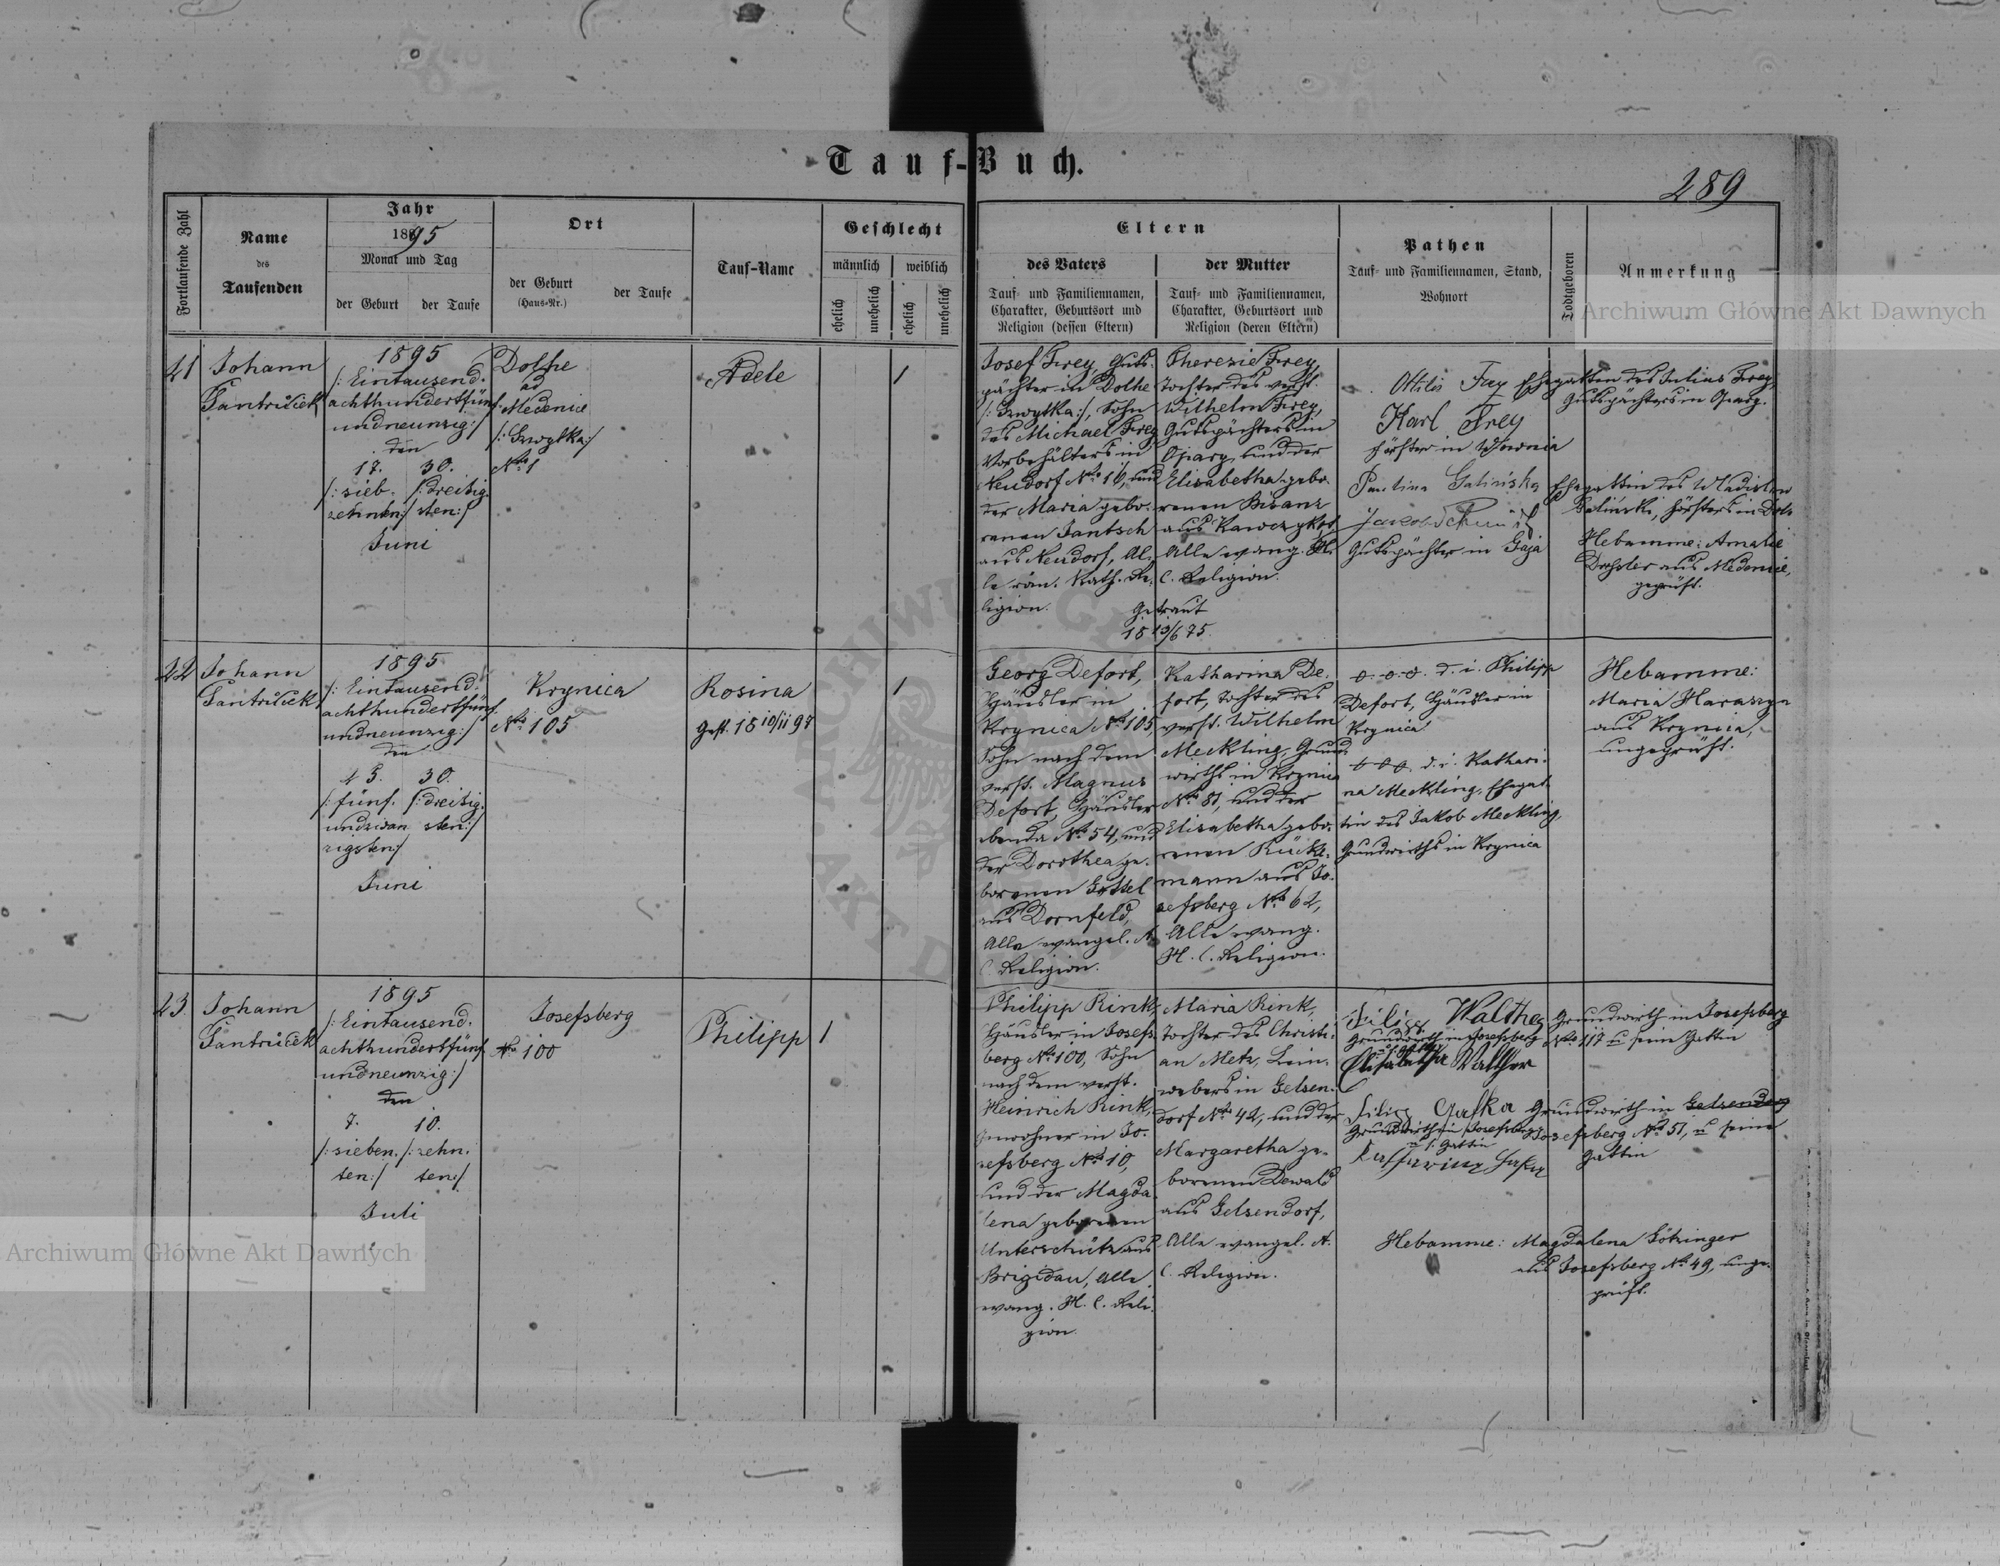 Tauf-Buch.
289
Fortlaufende Zahl
Name
des
Taufenden
Jahr
1895
Monat und Tag
der Geburt
der Taufe
Ort
der Geburt
(Haus-Nr.)
der Taufe
Tauf-Name
Geschlecht
männlich
weiblich
ehelich
unehelich
ehelich
unehelich
Eltern
des Vaters
Tauf- und Familiennamen,
Charakter, Geburtsort und
Religion (dessen Eltern)
der Mutter
Tauf- und Familiennamen,
Charakter, Geburtsort und
Religion (deren Eltern)
Pathen
Tauf- und Familiennamen, Stand,
Wohnort
Todtgeboren
Anmerkung
Archiwum Główne Akt Dawnych
41
Johann
Jantrůček
1895
/: Eintausend.
achthundertfünf
undneunzig:/
den
17. 30.
/: sieb. /: dreißig.
zehnten:/ sten:/
Juni
Dolhe
ad
Medenice
/: Grwytka:/
No 1
Adele
1
Josef Frey, Guts-
pächter in Dolhe
/: Grwytka:/, Sohn
des Michael Frey
Vorbehälters in
Neudorf No 16, und
der Maria gebo-
renen Jantsch
aus Neudorf, Al-
le röm. Kath. Re-
ligion.
Theresie Frey,
Tochter des verst.
Wilhelm Frey,
Gutspächters in
Opary, und der
Elisabetha gebo-
renen Bisanz
aus
Alle evang. H.
C. Religion.
Getraut
18 13/6 75.
Ottilie Frey Ehegattin des Julius Frey,
Gutspächters in Opary.
Karl Frey
Förster in
Paulina Galińska Ehegattin des Wladislaw
Galinski, Försters in
Jakob Schmidt
Gutspächter in Gaja
Hebamme: Amalie
Dressler aus Medenice,
geprüft.
42
Johann
Jantrůček
1895
/: Eintausend.
achthundertfünf
undneunzig:/
den
25. 30.
/: fünf. /: dreißig.
undzwan sten:/
zigsten:/
Juni
Krynica
No 105
Rosina
Gest. 18 10/11 97
1
Georg Defort,
Häusler in
Krynica No 105,
Sohn nach dem
verst. Magnus
Defort, Häusler
ebenda No 54, und
der Dorothea ge-
borenen Gossel
aus Dornfeld,
Alle evangel. A.
C. Religion.
Katharina De-
fort, Tochter des
verst. Wilhelm
Meckling, Grund-
wirths in Krynica
No 81, und der
Elisabetha gebo-
renen Rücke-
mann aus Jo-
sefsberg No 62,
Alle evang.
H. C. Religion.
o. o. o. d. i. Philipp
Defort, Häusler in
Krynica
d. i. Kathari-
na Meckling, Ehegat-
tin des Jakob Meckling,
Grundwirths in Krynica
Hebamme:
Maria Haraszyn
aus Krynica,
ungeprüft.
43
Johann
Jantrůček
1895
/: Eintausend.
achthundertfünf
undneunzig:/
den
7. 10.
/: sieben. /: zehn.
ten:/ ten:/
Juli
Josefsberg
No 100
Philipp
1
Philipp Rink,
Häusler in Josefs-
berg No 100, Sohn
nach dem verst.
Heinrich Rink,
Inwohner in Jo-
sefsberg No 10,
und der Magda-
lena geborenen
Unterschütz aus
Brigidau, Alle
evang. H. C. Reli-
gion.
Maria Rink,
Tochter des Christi-
an Metz, Lein-
webers in Gelsen-
dorf No 42, und der
Margaretha ge-
borenen Dewald
aus Gelsendorf,
Alle evangel. A.
C. Religion.
Filipp Walther Grundwirth in Josefsberg
Grundwirth in Josefsberg No 117 u. sein Gattin
Elisabetha Walther
Filipp Grundwirth in Gelsendorf
Grundwirth in Josefsberg Josefsberg No 51, u. seine
u. s. Gattin Gattin
Hebamme: Magdalena Götzinger
aus Josefsberg No 49, unge-
prüft.
Archiwum Główne Akt Dawnych